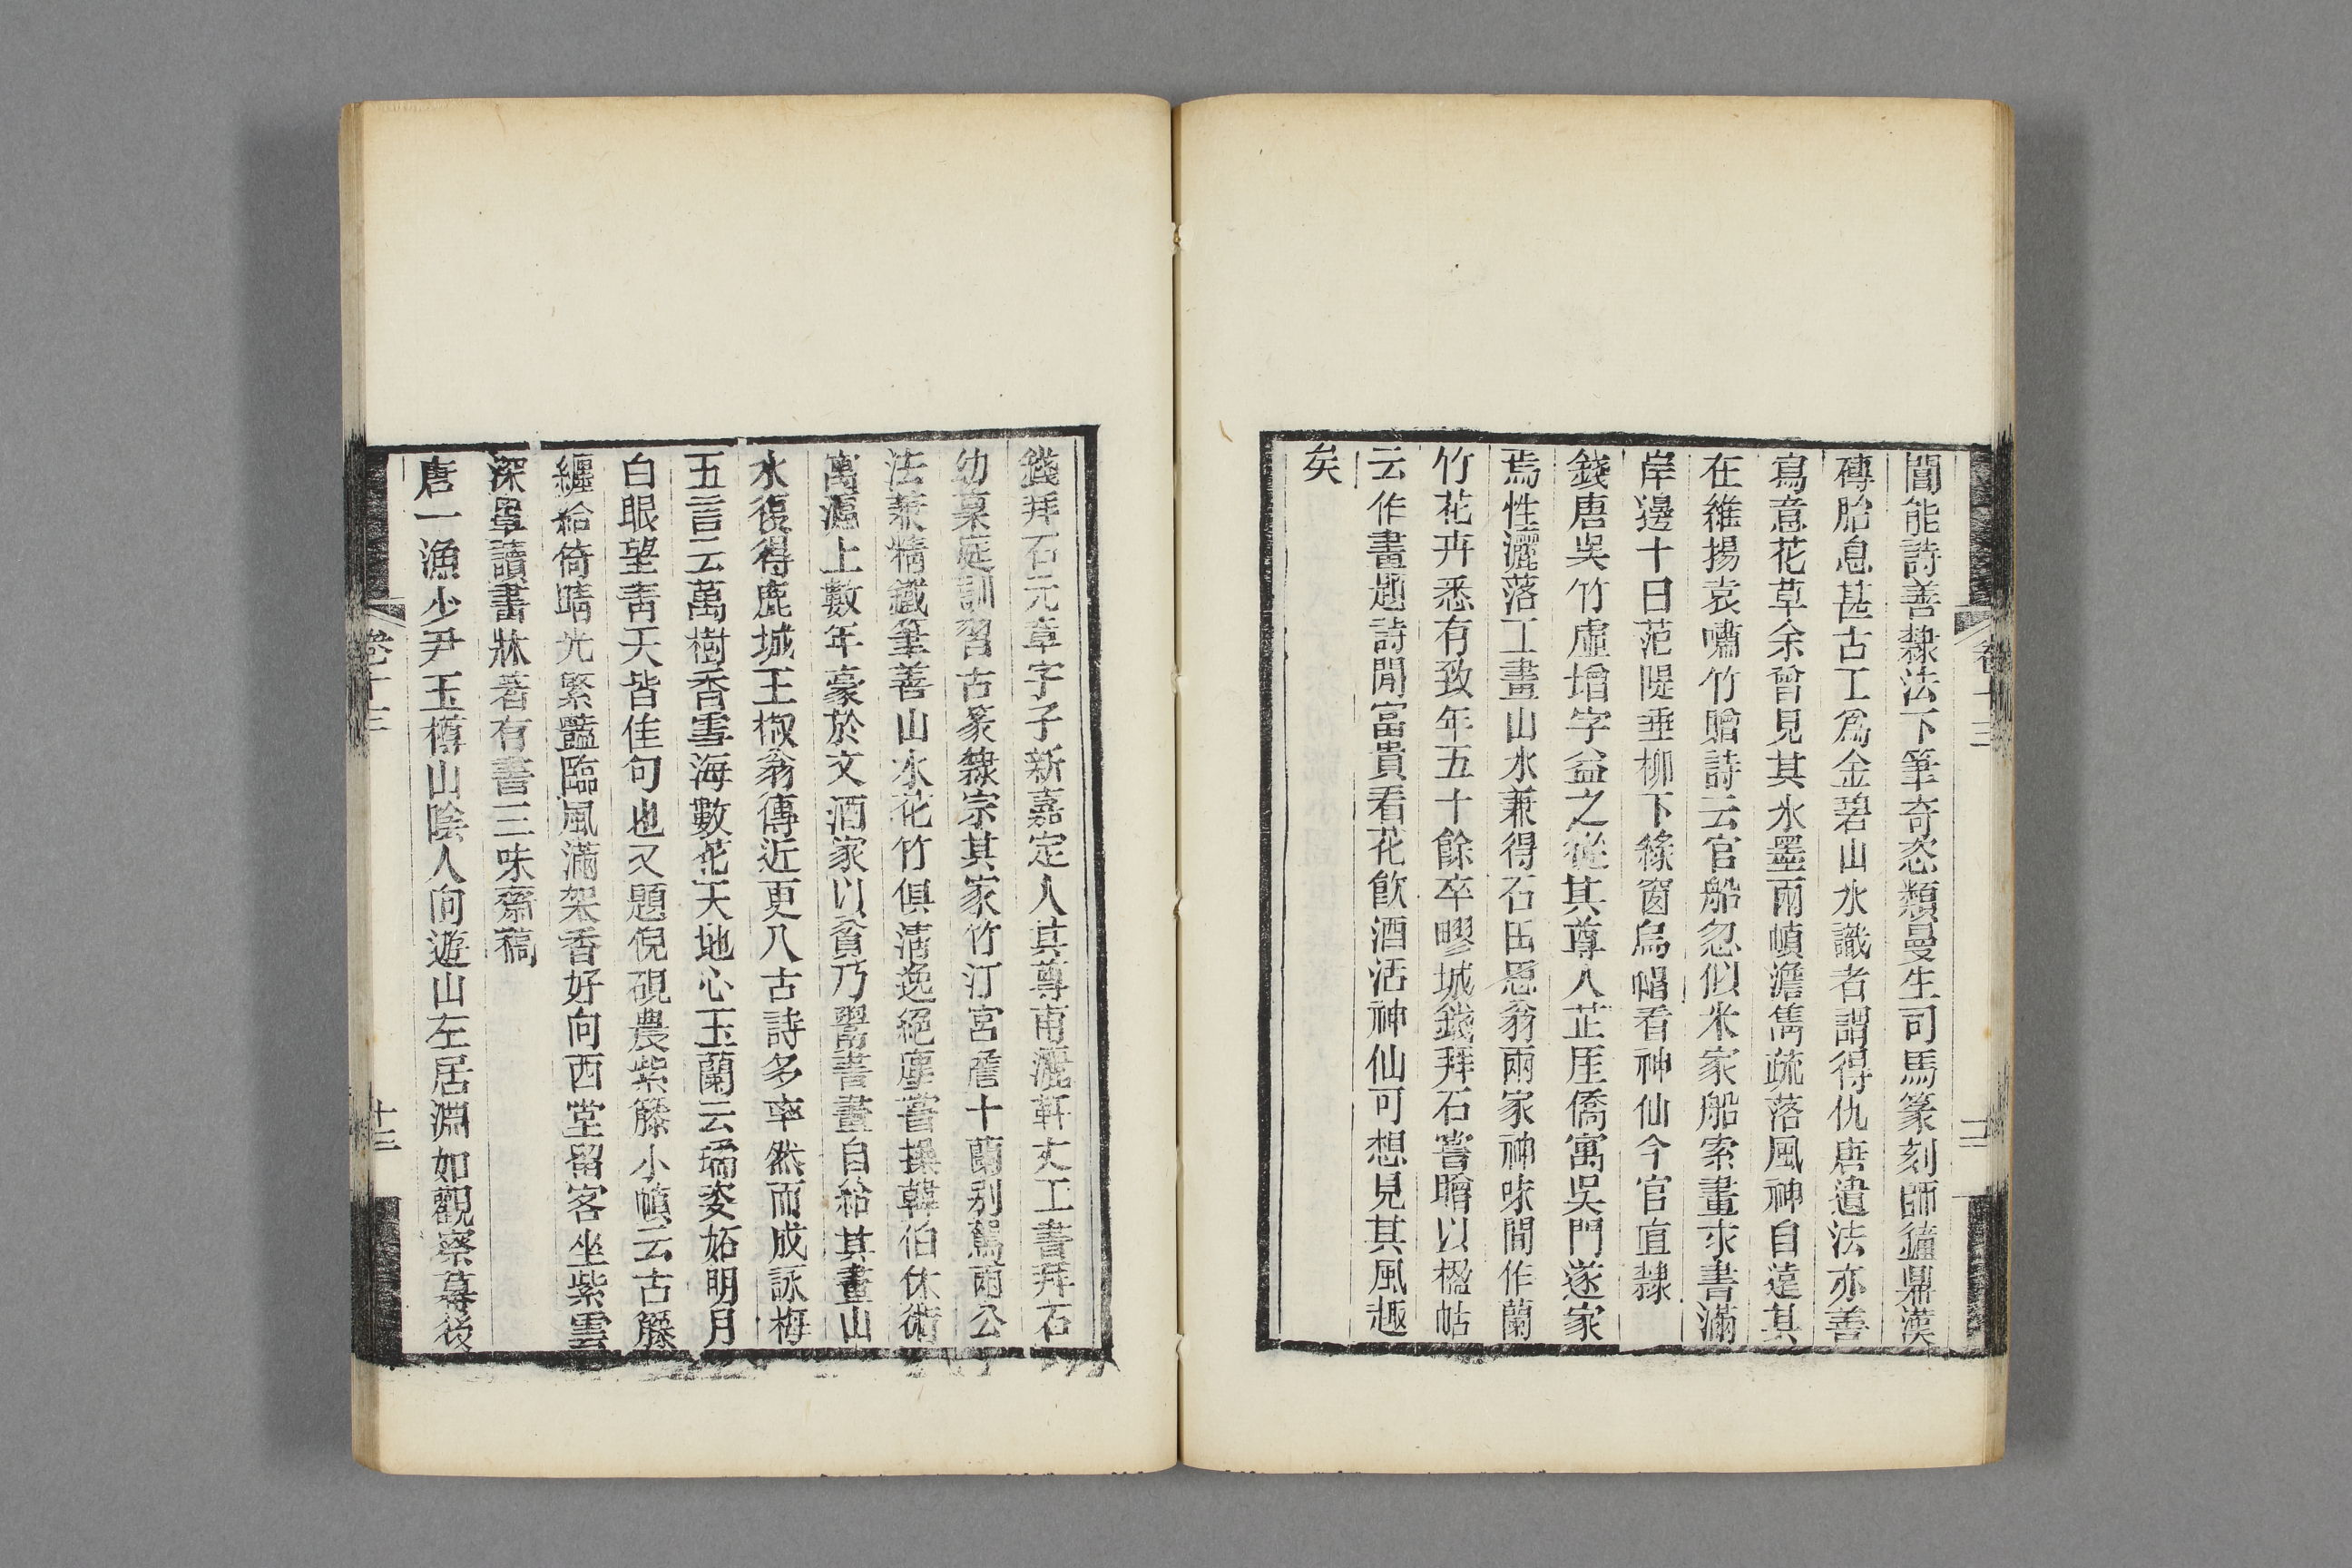 閒能詩善隸法下筆奇恣類曼生司馬篆刻師鐘鼎漢
磚胎息甚古工爲金碧山水識者謂得仇唐遺法亦善
寫意花草余曾見其水墨兩幀澹雋疏落風神自遠其
在維揚袁嘯竹贈詩云官船忽似米家船索畫求書滿
岸邊十日范隄垂柳下綠窗烏帽看神仙今官直隸
錢唐吳竹虛增字益之從其尊人芷厓僑寓吳門遂家
焉性灑落工畫山水兼得石田惲翁兩家神味間作蘭
竹花卉悉有致年五十餘卒疁城錢拜石嘗贈以楹帖
云作畫題詩閒富貴看花飮酒活神仙可想見其風趣
矣
卷十三
十二
錢拜石元章字子新嘉定人其尊甫漑軒丈工書拜石
幼稟庭訓習古篆隸宗其家竹汀宮詹十蘭別駕兩公
法兼精鐵筆善山水花竹俱清逸絕塵嘗操韓伯休術
寓滬上數年豪於文酒家以貧乃鬻書畫自給其畫山
水復得鹿城王椒翁傳近更入古詩多率然而成詠梅
五言云萬樹香雪海數花天地心玉蘭云瑤姿妬明月
白眼望靑天皆佳句也又題倪硯農紫籐小幀云古籐
纏給倚晴光繁豔臨風滿架香好向西堂留客坐紫雲
深罩讀書牀著有書三味齋稿
唐一漁少尹玉樽山陰人向遊山左居淵如觀察幕後
卷十三
十三